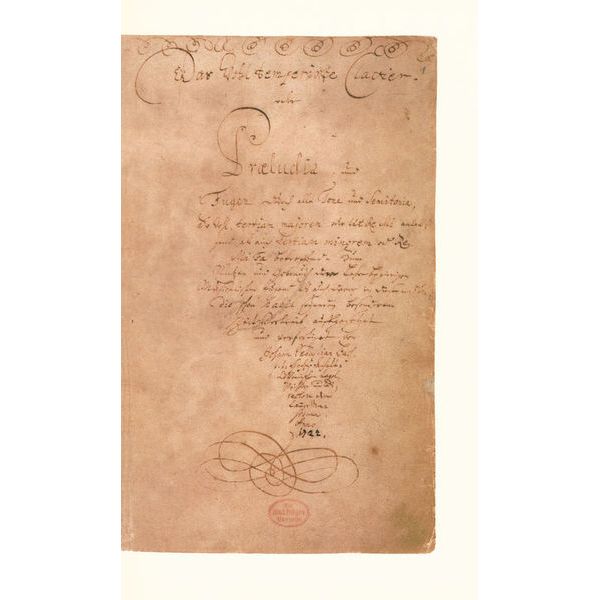 Das Wohltemperirte Clavier.
oder
Præludia, und
Fugen durch alle Tone und Semitonia,
So wohl tertiam majorem oder Ut Re Mi anlan-
gend, als auch tertiam minorem oder Re
Mi Fa betreffend. Zum
Nutzen und Gebrauch der Lehrbegierigen
Musicalischen Jugend, als auch derer in diesem stu-
dio schon habil seyenden besonderem
Zeitvertreib auffgesetzet
und verfertiget von
Johann Sebastian Bach
Anno
1722.